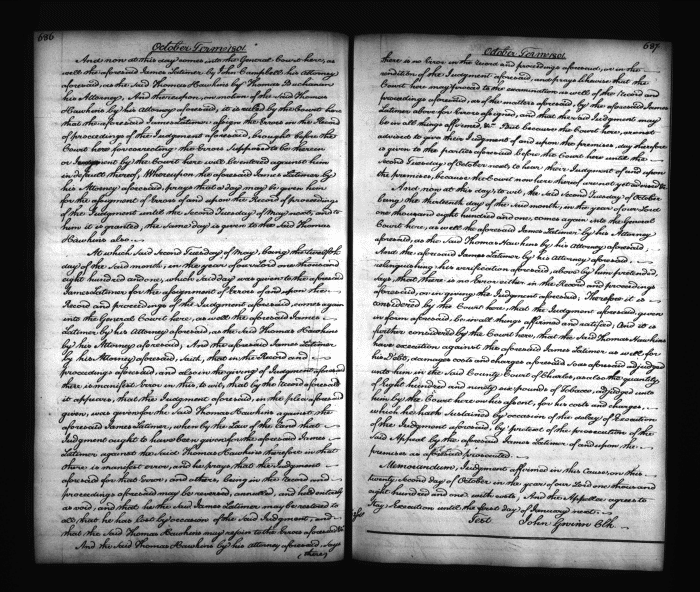 686
October Term 1801
And now at this day comes into the General Court here, as
well the aforesaid James Latimer by John Campbell his Attorney
aforesaid, as the said Thomas Hawkins by Thomas Buchanan
his Attorney, And thereupon, on motion of the said Thomas
Hawkins by his Attorney aforesaid, it is ruled by the Court here
that the aforesaid James Latimer assign the Errors in the Record
of proceedings of the Judgment aforesaid, brought before the
Court here for correcting the Errors supposed to be therein
or Judgment by the Court here will be entered against him
in default thereof, Whereupon the aforesaid James Latimer by
his Attorney aforesaid, prays that a day may be given him
for the assigment of Errors of and upon the Record of proceedings
of the Judgment until the Second Tuesday of May next, and to
him it is granted, the same day is given to the said Thomas
Hawkins also
At which said Second Tuesday of May, being the twelfth
day of the said month, in the year of our Lord one thousand
eight hundred and one, which said day was given to the aforesaid
James Latimer for the assigment of Errors of and upon the
Record and proceedings of the Judgment aforesaid, comes again
into the General Court here, as well the aforesaid James
Latimer by his Attorney aforesaid, as the said Thomas Hawkins
by his Attorney aforesaid, And the aforesaid James Latimer
by his Attorney aforesaid, saith, that in the Record and
proceedings aforesaid, and also in the giving of Judgment aforesaid
there is manifest Error in this, to wit, that by the Record aforesaid
it appears, that the Judgment aforesaid, in the plea aforesaid
given, was given for the said Thomas Hawkins against the
aforesaid James Latimer, when by the Law of the Land that
Judgment ought to have been given for the aforesaid James
Latimer against the said Thomas Hawkins therefore in that
there is manifest error, and he prays that the Judgment
aforesaid for that Error, and others, being in the Record and
proceedings aforesaid may be reversed, annulled, and held entirely
as void, and that he the said James Latimer may be restored to
all, that he has lost by occasion of the said Judgment, and
that the said Thomas Hawkins may rejoin to the Errors aforesaid &c
And the said Thomas Hawkins by his attorney aforesaid, says
there
687
October Term 1801
there is no Error in the Record and proceedings aforesaid, or in the
rendition of the Judgment aforesaid, and prays likewise that the
Court here may proceed to the examination as well of the Record and
proceedings aforesaid, as of the matters aforesaid, by the aforesaid James
Latimer above for Errors assigned, and that the said Judgment may
be in all things affirmed, &c. But because the Court here, are not
advised to give their Judgment of and upon the premises, day therefore
is given to the parties aforesaid before the Court here until the
Second Tuesday of October next to hear their Judgment of and upon
the premises, because the Court now here thereof are not yet advised &c
And now at this day to wit, the said Second Tuesday of October
being the thirteenth day of the said month, in the year of our Lord
one thousand eight hundred and one, comes again into the General
Court here, as well the aforesaid James Latimer by his Attorney
aforesaid, as the said Thomas Hawkins by his Attorney aforesaid
And the aforesaid James Latimer by his Attorney aforesaid,
relinquishing his verification aforesaid, above by him pretended,
says, that there is no Error either in the Record and proceedings
aforesaid, or in giving the Judgment aforesaid; Therefore it is
considered by the Court here, that the Judgment aforesaid given
in form aforesaid, be in all things affirmed and ratified, And it is
further considered by the Court here, that the said Thomas Hawkins
have execution against the aforesaid James Latimer as well for
his Debt, damages costs and charges aforesaid so as aforesaid adjudged
unto him in the said County Court of Charles, as also the quantity
of Eight hundred and ninety six pounds of Tobacco, adjudged unto
him by the Court here on his assent, for his costs and charges,
which he hath sustained by occasion of the delay of Execution
of the Judgment aforesaid, by pretext of the prosecution of the
said Appeal by the aforesaid James Latimer of and upon the
premises as aforesaid prosecuted.
Memorandum, Judgment affirmed in this Cause, on this
twenty second day of October in the year of our Lord one thousand
eight hundred and one, with costs, And the Appellee agrees to
Stay Execution until the first day of January next.
Test John Gwinn Clk